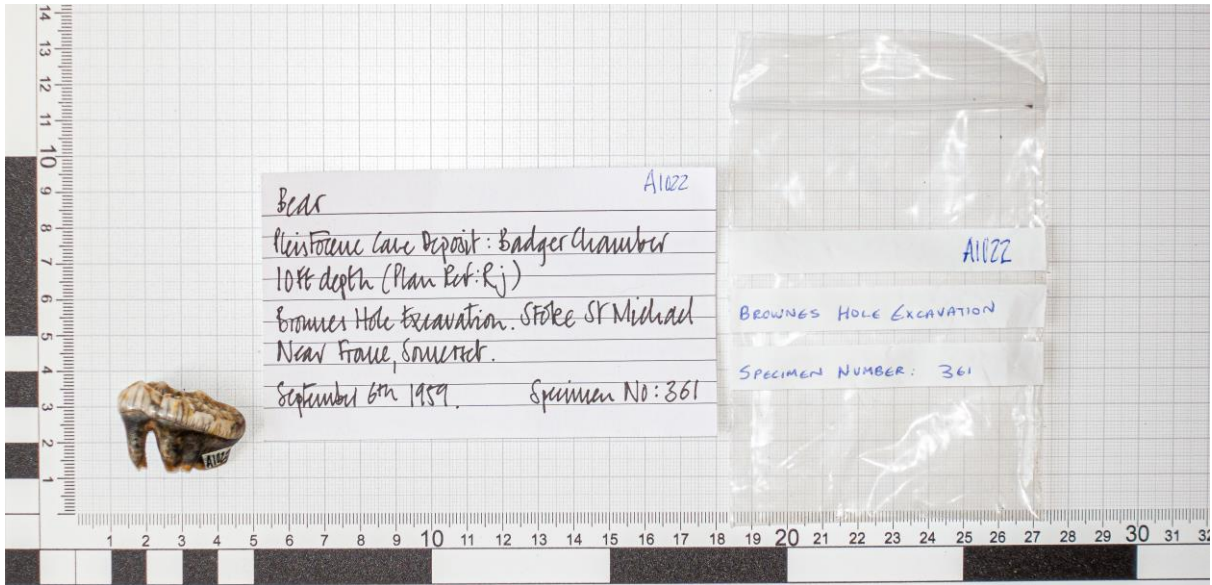 A1022
Bear
Pleistocene Cave Deposit: Badger Chamber
10ft depth (Plan Ref: Rj)
Brownes Hole Excavation. Stoke St Michael
Near Frome, Somerset.
September 6th 1959. Specimen No: 361
A1022
BROWNES HOLE EXCAVATION
SPECIMEN NUMBER: 361
A1022
14
13
12
11
10
9
8
7
6
5
4
3
2
1
1 2 3 4 5 6 7 8 9 10 11 12 13 14 15 16 17 18 19 20 21 22 23 24 25 26 27 28 29 30 31 32